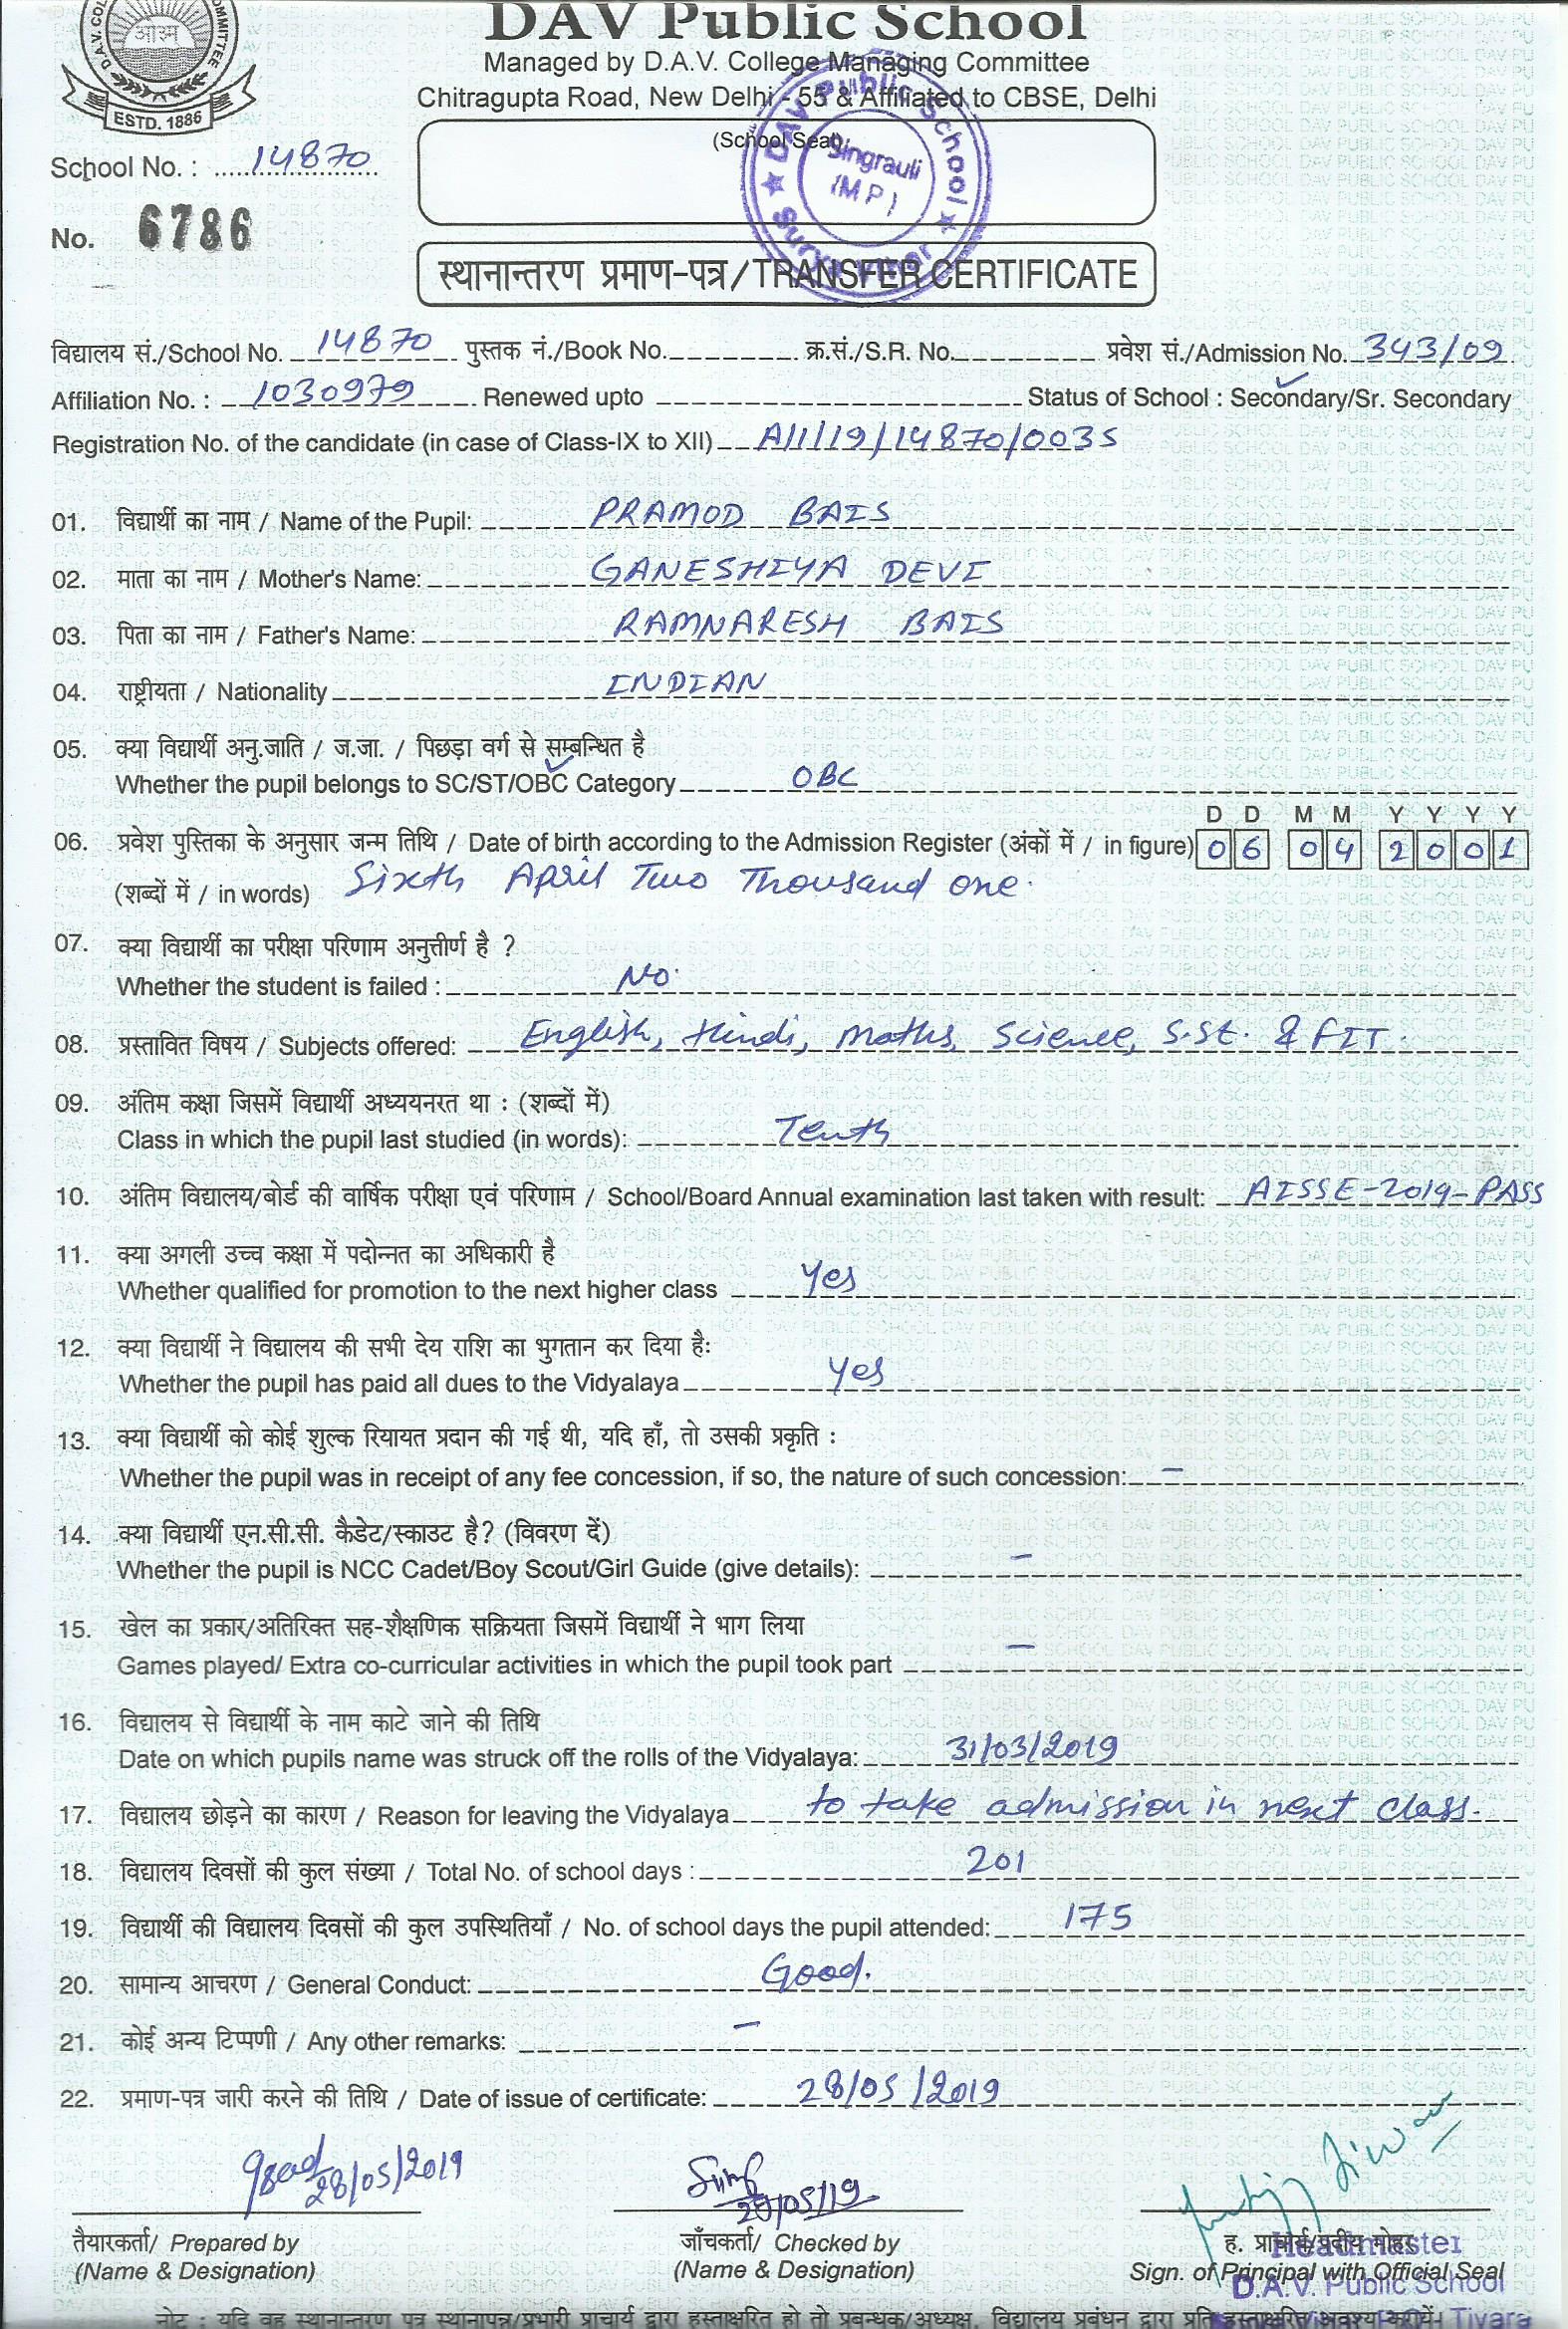 DAV Public School
Managed by D.A.V. College Managing Committee
Chitragupta Road, New Delhi - 55 & Affiliated to CBSE, Delhi
ESTD. 1886
(School Seal)
DAV Public School
Singrauli
(M P)
School No. : 14870
No. 6786
स्थानान्तरण प्रमाण-पत्र/TRANSFER CERTIFICATE
विद्यालय सं./School No. 14870 पुस्तक नं./Book No. क्र.सं./S.R. No. प्रवेश सं./Admission No. 343/09
Affiliation No. : 1030979 Renewed upto Status of School : Secondary/Sr. Secondary
Registration No. of the candidate (in case of Class-IX to XII) A/1/19/14870/0035
01. विद्यार्थी का नाम / Name of the Pupil: PRAMOD BAIS
02. माता का नाम / Mother's Name: GANESHIYA DEVI
03. पिता का नाम / Father's Name: RAMNARESH BAIS
04. राष्ट्रीयता / Nationality INDIAN
05. क्या विद्यार्थी अनु.जाति / ज.जा. / पिछड़ा वर्ग से सम्बन्धित है
Whether the pupil belongs to SC/ST/OBC Category OBC
D D M M Y Y Y Y
06. प्रवेश पुस्तिका के अनुसार जन्म तिथि / Date of birth according to the Admission Register (अंकों में / in figure) 0 6 0 4 2 0 0 1
(शब्दों में / in words) Sixth April Two Thousand one.
07. क्या विद्यार्थी का परीक्षा परिणाम अनुत्तीर्ण है ?
Whether the student is failed : No.
08. प्रस्तावित विषय / Subjects offered: English, Hindi, Maths, Science, S.St. & FIT.
09. अंतिम कक्षा जिसमें विद्यार्थी अध्ययनरत था : (शब्दों में)
Class in which the pupil last studied (in words): Tenth
10. अंतिम विद्यालय/बोर्ड की वार्षिक परीक्षा एवं परिणाम / School/Board Annual examination last taken with result: AISSE-2019-PASS
11. क्या अगली उच्च कक्षा में पदोन्नत का अधिकारी है
Whether qualified for promotion to the next higher class Yes
12. क्या विद्यार्थी ने विद्यालय की सभी देय राशि का भुगतान कर दिया है:
Whether the pupil has paid all dues to the Vidyalaya Yes
13. क्या विद्यार्थी को कोई शुल्क रियायत प्रदान की गई थी, यदि हाँ, तो उसकी प्रकृति :
Whether the pupil was in receipt of any fee concession, if so, the nature of such concession: –
14. क्या विद्यार्थी एन.सी.सी. कैडेट/स्काउट है? (विवरण दें)
Whether the pupil is NCC Cadet/Boy Scout/Girl Guide (give details): –
15. खेल का प्रकार/अतिरिक्त सह-शैक्षणिक सक्रियता जिसमें विद्यार्थी ने भाग लिया
Games played/ Extra co-curricular activities in which the pupil took part –
16. विद्यालय से विद्यार्थी के नाम काटे जाने की तिथि
Date on which pupils name was struck off the rolls of the Vidyalaya: 31/03/2019
17. विद्यालय छोड़ने का कारण / Reason for leaving the Vidyalaya to take admission in next class.
18. विद्यालय दिवसों की कुल संख्या / Total No. of school days : 201
19. विद्यार्थी की विद्यालय दिवसों की कुल उपस्थितियाँ / No. of school days the pupil attended: 175
20. सामान्य आचरण / General Conduct: Good.
21. कोई अन्य टिप्पणी / Any other remarks: –
22. प्रमाण-पत्र जारी करने की तिथि / Date of issue of certificate: 28/05/2019
28/05/2019
28/05/19
तैयारकर्ता/ Prepared by जाँचकर्ता/ Checked by ह. प्राचार्य/प्रदीय मोहर
Headmaster
(Name & Designation) (Name & Designation) Sign. of Principal with Official Seal
D.A.V. Public School
नोट : यदि वह स्थानान्तरण पत्र स्थानापन्न/प्रभारी प्राचार्य द्वारा हस्ताक्षरित हो तो प्रबन्धक/अध्यक्ष, विद्यालय प्रबंधन द्वारा प्रति हस्ताक्षरित अवश्य करायें।
Tiyara